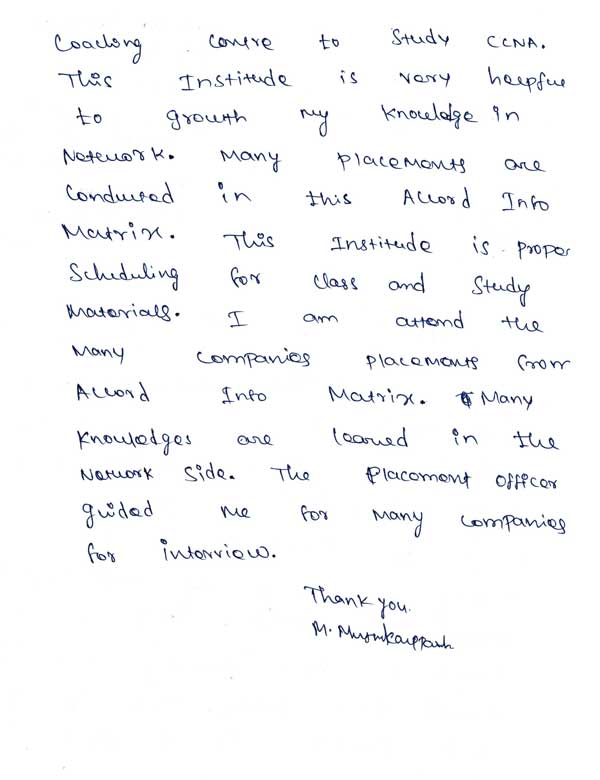 Coaching centre to Study CCNA.
This Institude is very helpful
to growth my knowledge in
Network. Many placements are
Conducted in this Accord Info
Matrix. This Institude is proper
Scheduling for class and Study
Materials. I am attend the
Many Companies placements from
Accord Info Matrix. Many
Knowledges are learned in the
Network Side. The Placement officer
guided me for many companies
for interview.
Thank you.
M.